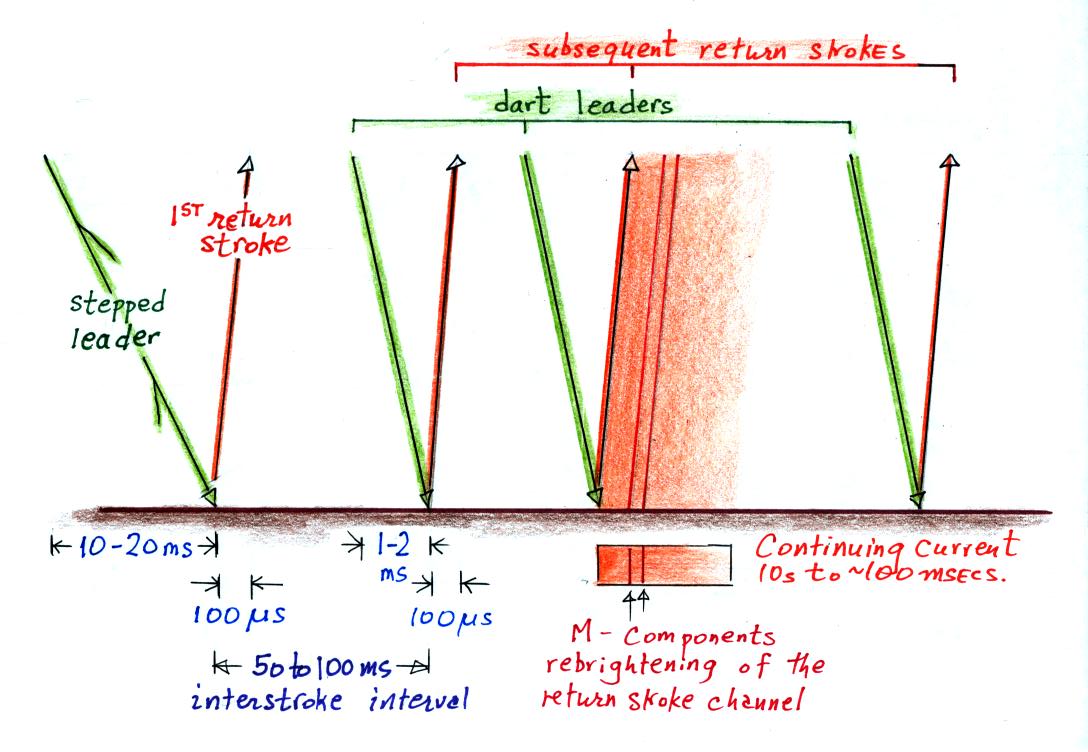 subsequent return strokes
dart leaders
1ST return
stroke
stepped
leader
10-20ms
1-2
ms
100 μs
100 μs
50 to 100 ms
interstroke interval
Continuing Current
10s to ~100 msecs.
M - Components
rebrightening of the
return skoke channel